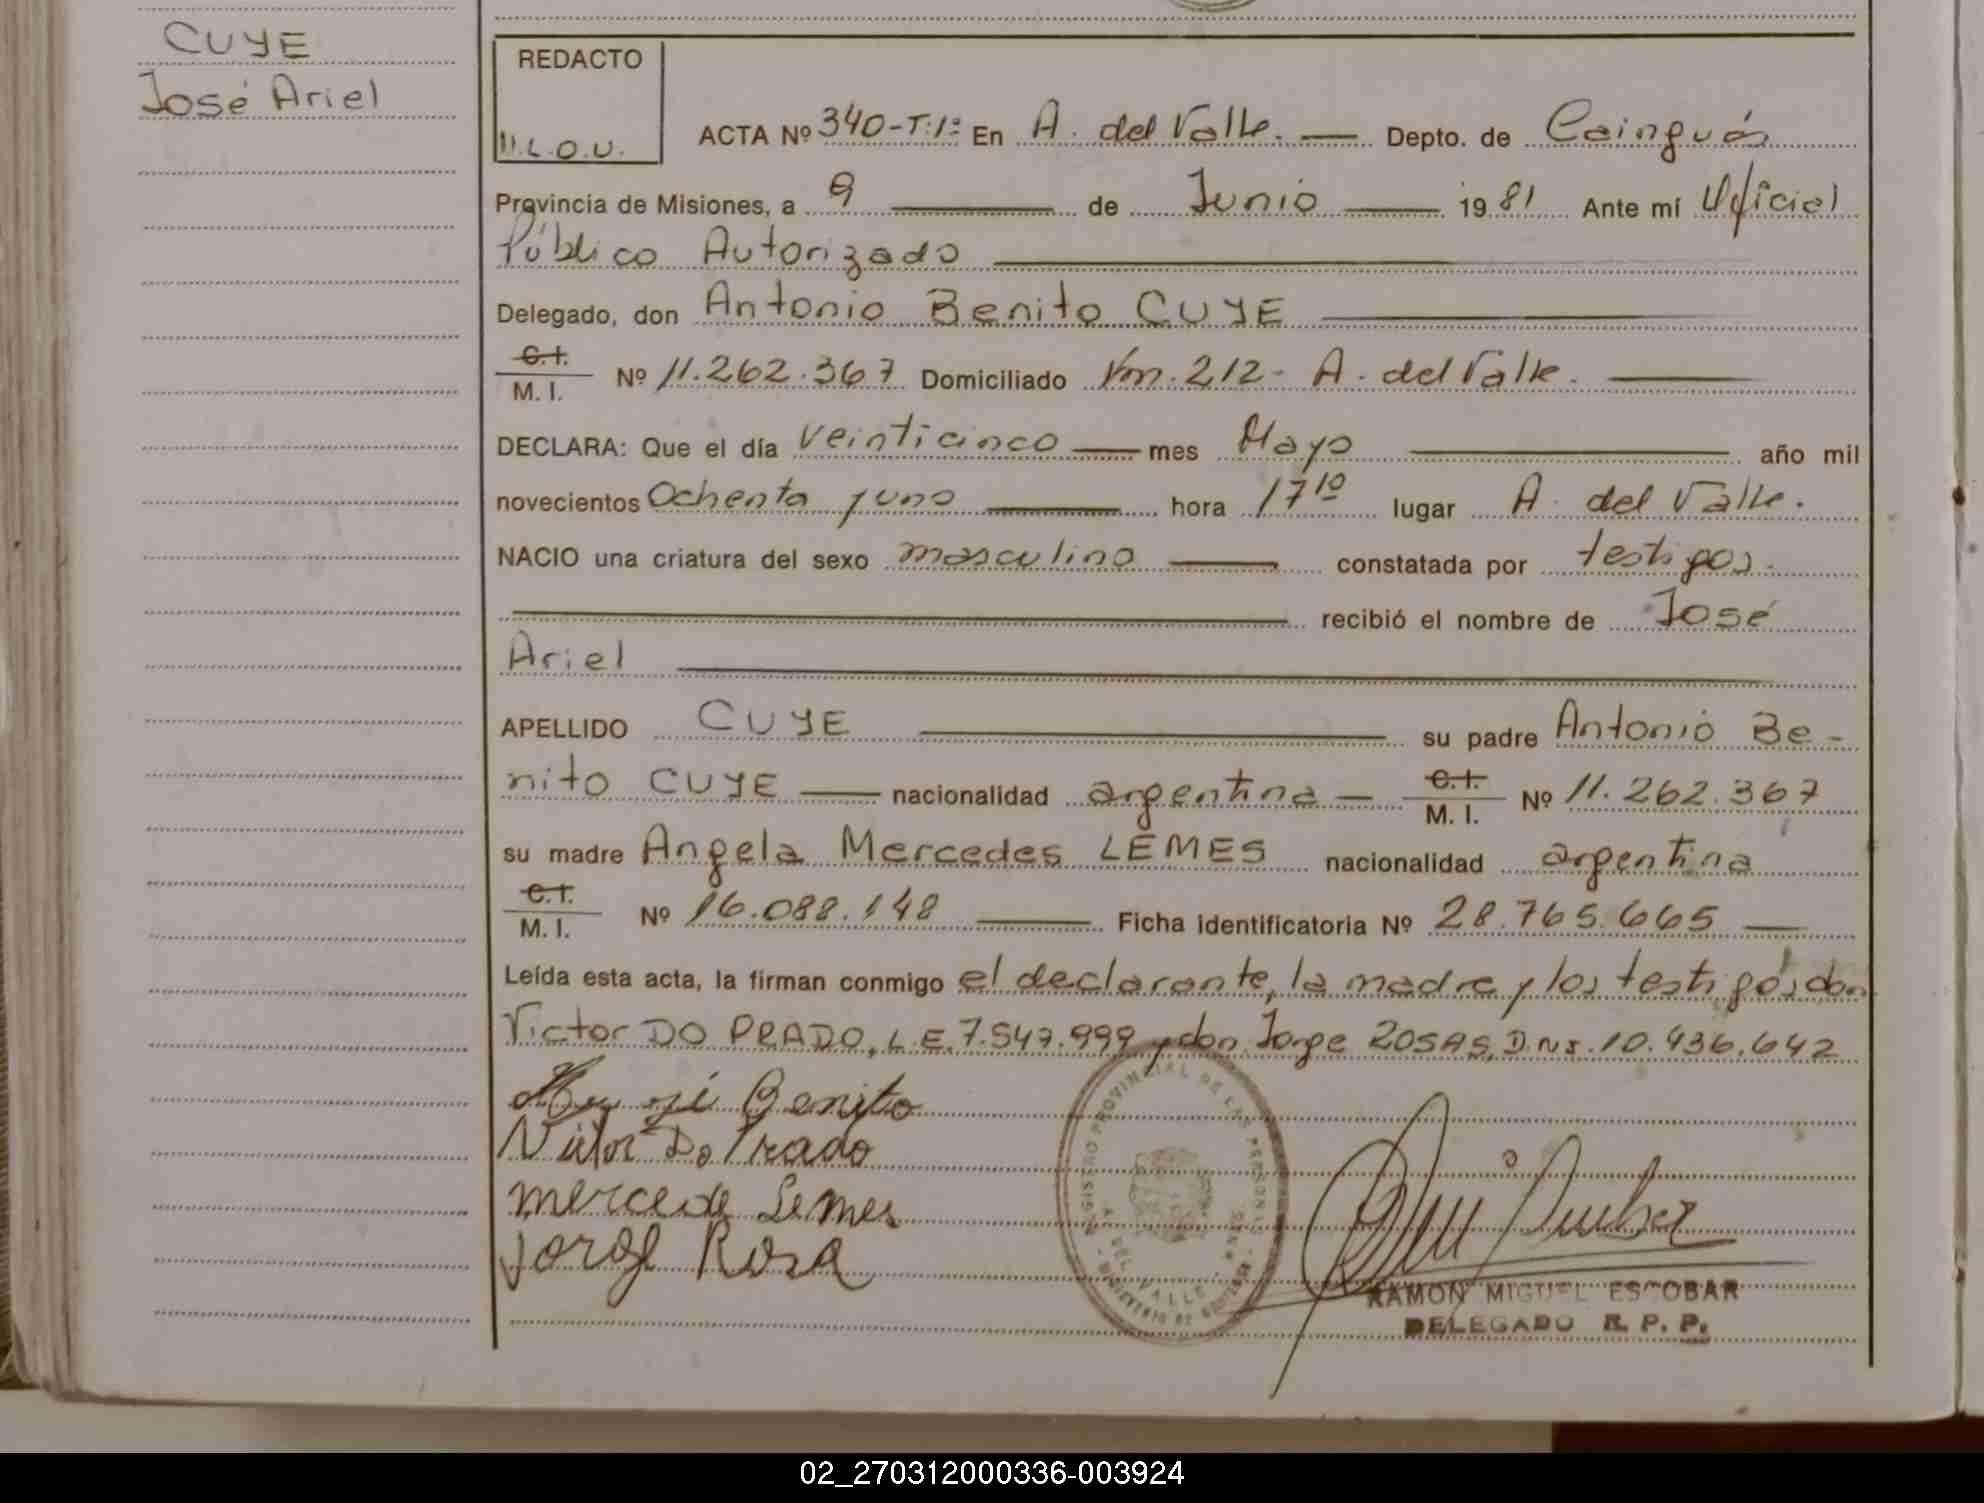 CUYE
José Ariel
REDACTO
U.L.O.U.
ACTA Nº 340-T:1º En A. del Valle. Depto. de Cainguás
Provincia de Misiones, a 9 de Junio 1981 Ante mí Oficial
Público Autorizado
Delegado, don Antonio Benito CUYE
C.I.
M. I. Nº 11.262.367 Domiciliado Km. 212- A. del Valle.
DECLARA: Que el día veinticinco mes Mayo año mil
novecientos Ochenta y uno hora 17 10 lugar A. del Valle.
NACIO una criatura del sexo masculino constatada por testigos.
recibió el nombre de José
Ariel
APELLIDO CUYE su padre Antonio Be-
nito CUYE nacionalidad argentina C.I. M. I. Nº 11.262.367
su madre Angela Mercedes LEMES nacionalidad argentina
C.I.
M. I. Nº 16.088.148 Ficha identificatoria Nº 28.765.665
Leída esta acta, la firman conmigo el declarante, la madre y los testigos don
Victor DO PRADO, L.E. 7.547.999 y don Jorge ROSAS, D.N.I. 10.436.642
Benito
Victor Do Prado
mercede Lemes
Jorge Rosa
REGISTRO PROVINCIAL DE LAS PERSONAS
A. DEL VALLE
RAMON MIGUEL ESCOBAR
DELEGADO R. P. P.
02_270312000336-003924